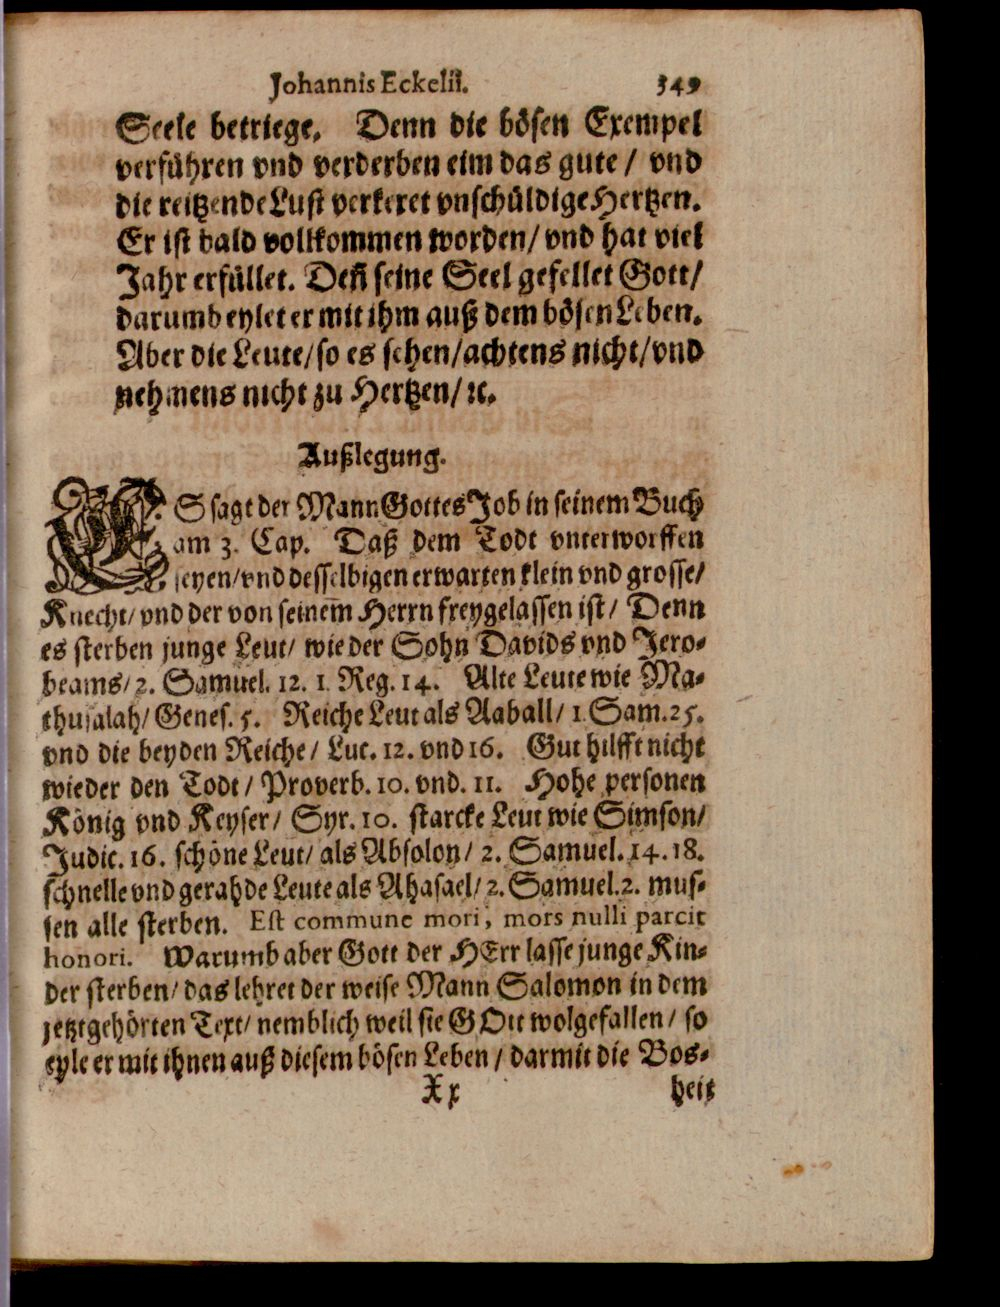 Johannis Eckelii. 349
Seele betriege. Denn die bösen Exempel
verführen vnd verderben eim das gute / vnd
die reitzende Lust verkeret vnschüldige Hertzen.
Er ist bald vollkommen worden / vnd hat viel
Jahr erfüllet. Deñ seine Seel gefellet Gott /
darumb eylet er mit ihm auß dem bösen Leben.
Aber die Leute / so es sehen / achtens nicht / vnd
nehmens nicht zu Hertzen / ꝛc.
Außlegung.
ES sagt der Mann Gottes Job in seinem Buch
am 3. Cap. Daß dem Todt vnterworffen
seyen / vnd desselbigen erwarten klein vnd grosse /
Knecht / vnd der von seinem Herrn freygelassen ist / Denn
es sterben junge Leut / wie der Sohn Davids vnd Jero-
beams / 2. Samuel. 12. 1. Reg. 14. Alte Leute wie Ma-
thusalah / Genes. 5. Reiche Leut als Aaball / 1. Sam. 25.
vnd die beyden Reiche / Luc. 12. vnd 16. Gut hilfft nicht
wieder den Todt / Proverb. 10. vnd. 11. Hohe personen
König vnd Keyser / Syr. 10. starcke Leut wie Simson /
Judic. 16. schöne Leut / als Absolon / 2. Samuel. 14. 18.
schnelle vnd gerahde Leute als Ahasael / 2. Samuel. 2. mus-
sen alle sterben. Est commune mori, mors nulli parcit
honori. Warumb aber Gott der HErr lasse junge Kin-
der sterben / das lehret der weise Mann Salomon in dem
jetztgehörten Text / nemblich weil sie GOtt wolgefallen / so
eyle er mit ihnen auß diesem bösen Leben / darmit die Bos-
Xx heit